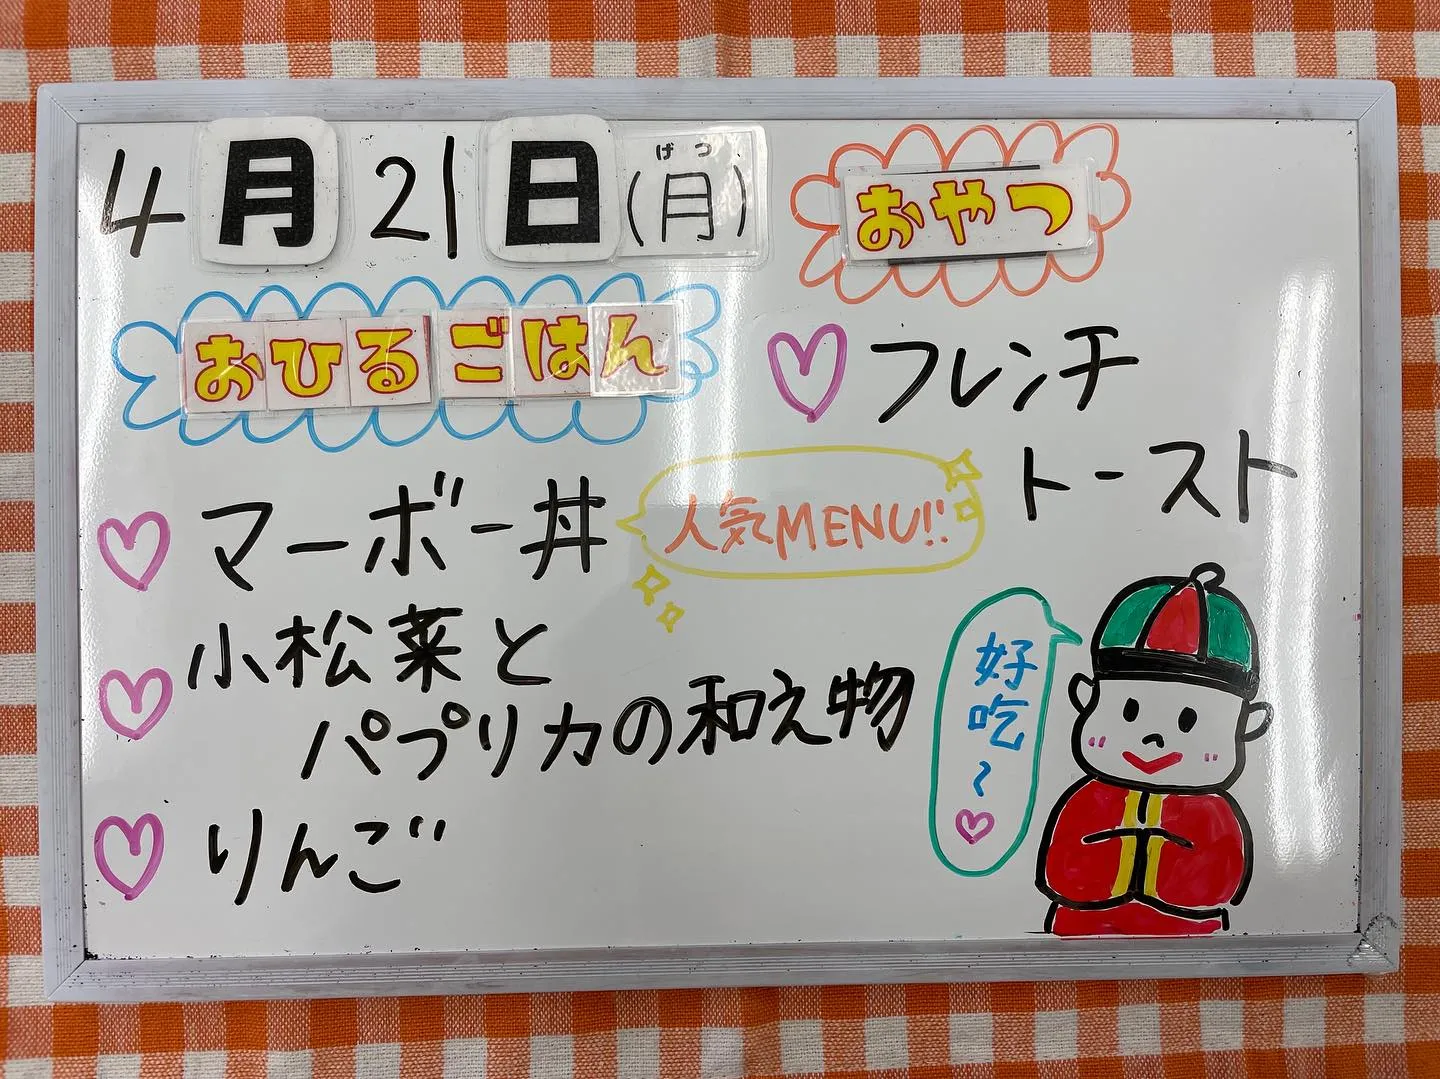 4月21日(月)
げつ
おひるごはん
マーボー丼
人気MENU!!
小松菜と
パプリカの和え物
りんご
おやつ
フレンチ
トースト
好吃～